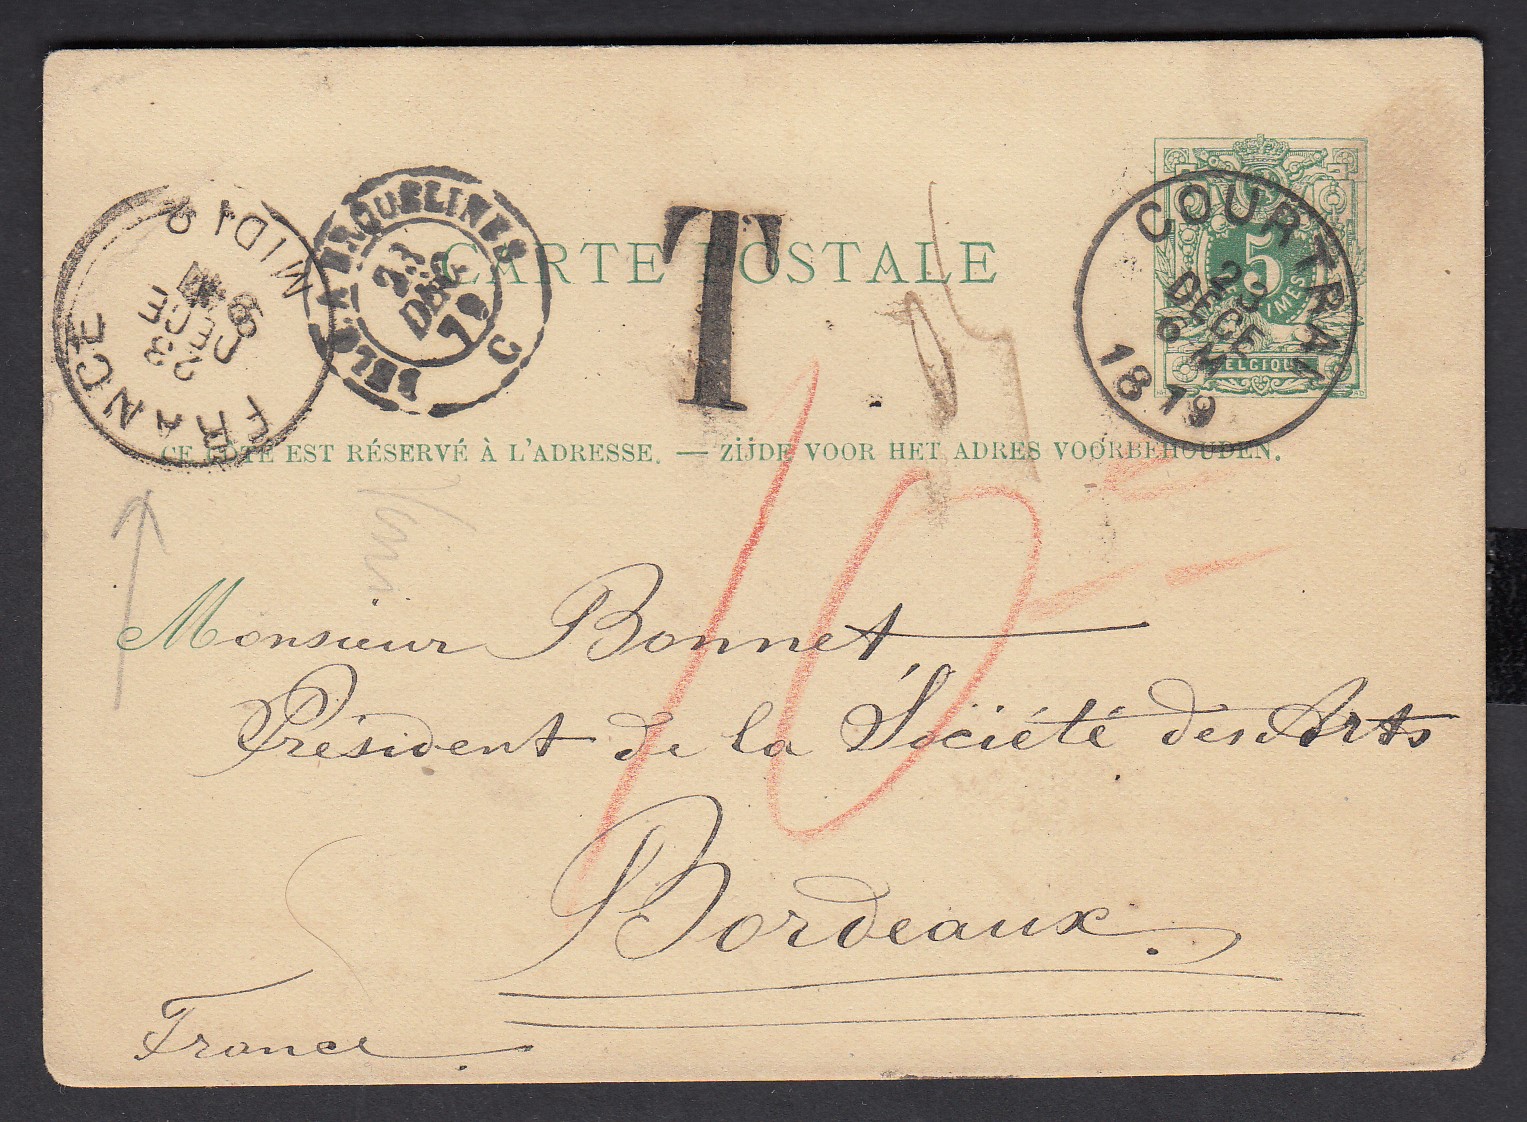 CARTE POSTALE
T
5
CENTIMES
BELGIQUE
COURTRAI
23
DECE
6 M
1879
BELG. A ERQUELINES
23
DEC
79
C
FRANCE MIDI 3
23
DECE
CE CÔTÉ EST RÉSERVÉ À L'ADRESSE. — ZIJDE VOOR HET ADRES VOORBEHOUDEN.
10
Monsieur Bonnet
Président de la Société des Arts
Bordeaux.
France